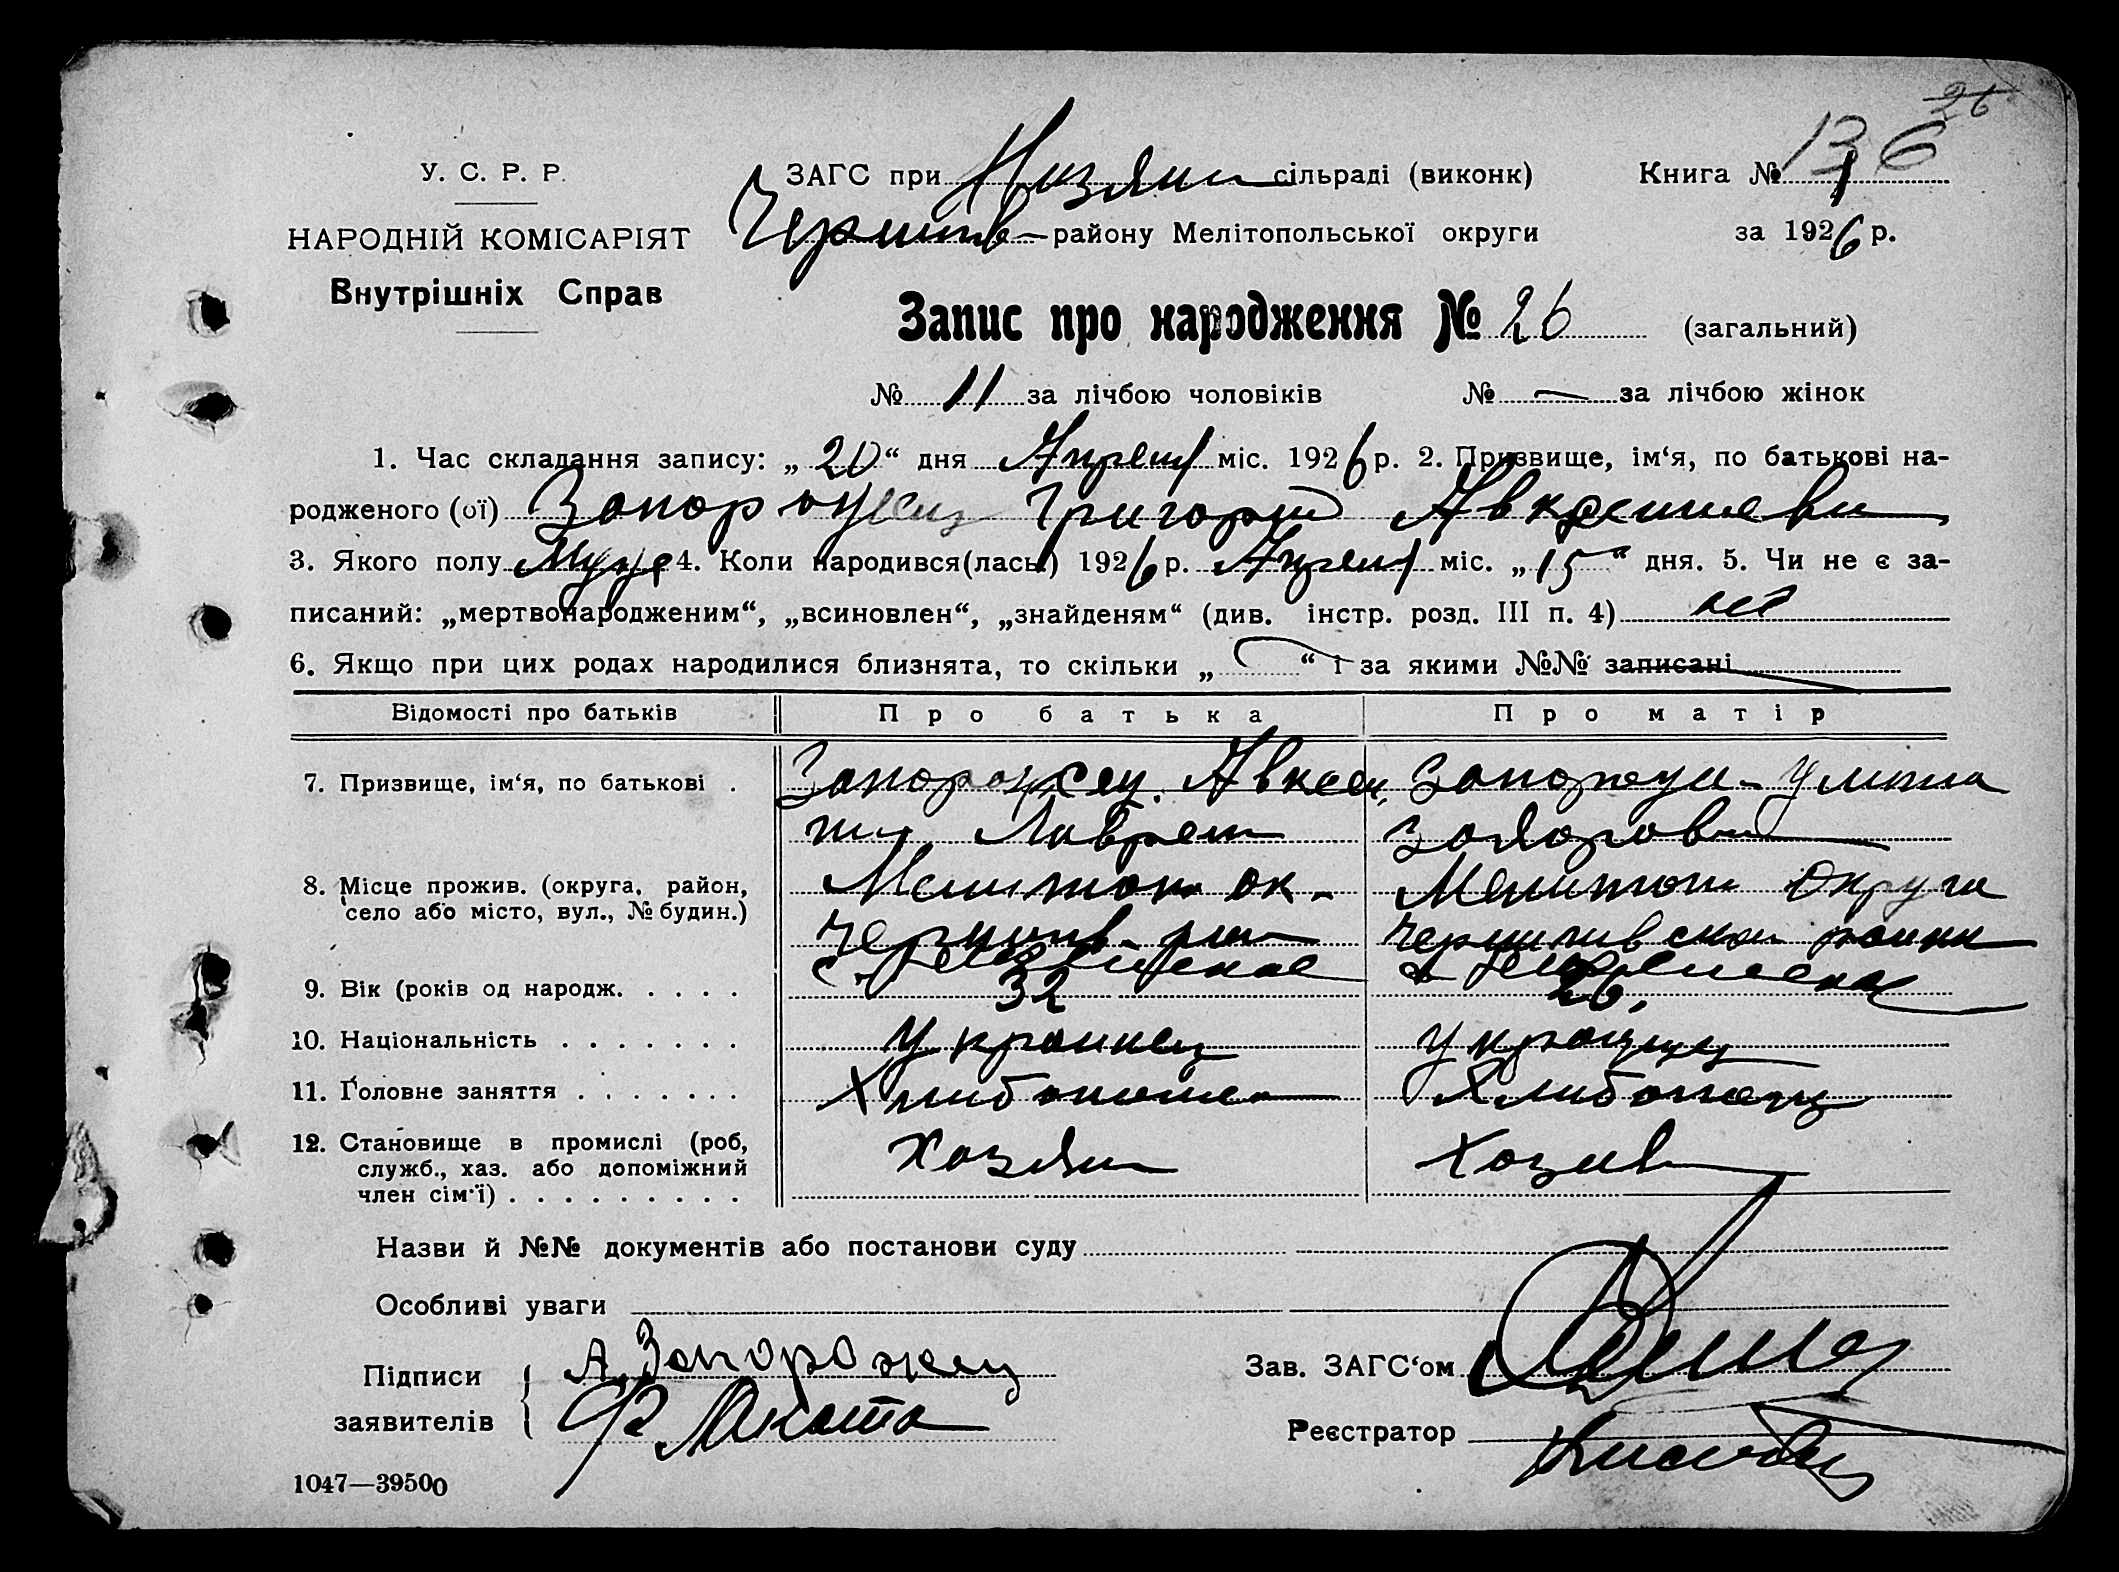 26
136
У. С. Р. Р.
ЗАГС при Низяни сільраді (виконк)
Книга № 1
НАРОДНІЙ КОМІСАРІЯТ
Внутрішніх Справ
Черниів району Мелітопольської округи
за 1926 р.
Запис про народження № 26 (загальний)
№ 11 за лічбою чоловіків № — за лічбою жінок
1. Час складання запису: „20“ дня Апреля міс. 1926 р. 2. Призвище, ім‘я, по батькові на-
родженого (ої) Запорожец Григорий
3. Якого полу Муже 4. Коли народився(лась) 1926 р. Апреля міс. „15“ дня. 5. Чи не є за-
писаний: „мертвонародженим“, „всиновлен“, „знайденям“ (див. інстр. розд. III п. 4) нет
6. Якщо при цих родах народилися близнята, то скільки „ “ і за якими №№ записані
Відомості про батьків
Про батька
Про матір
7. Призвище, ім‘я, по батькові .
Запорожец Авксен
тий Лаврен
Запорожец Улиана
8. Місце прожив. (округа, район,
село або місто, вул., № будин.)
Мелитоп ок.
Мелитоп Округа
9. Вік (років од народж. . . . .
32
26
10. Національність . . . . . . .
Украинец
Украинец
11. Головне заняття . . . . . . .
Хлибопашец
12. Становище в промислі (роб,
служб., хаз. або допоміжний
член сім‘ї) . . . . . . . . .
Хозяин
Назви й №№ документів або постанови суду
Особливі уваги
Підписи
заявителів
А. Запорожец
Зав. ЗАГС‘ом
Реєстратор
1047—39500